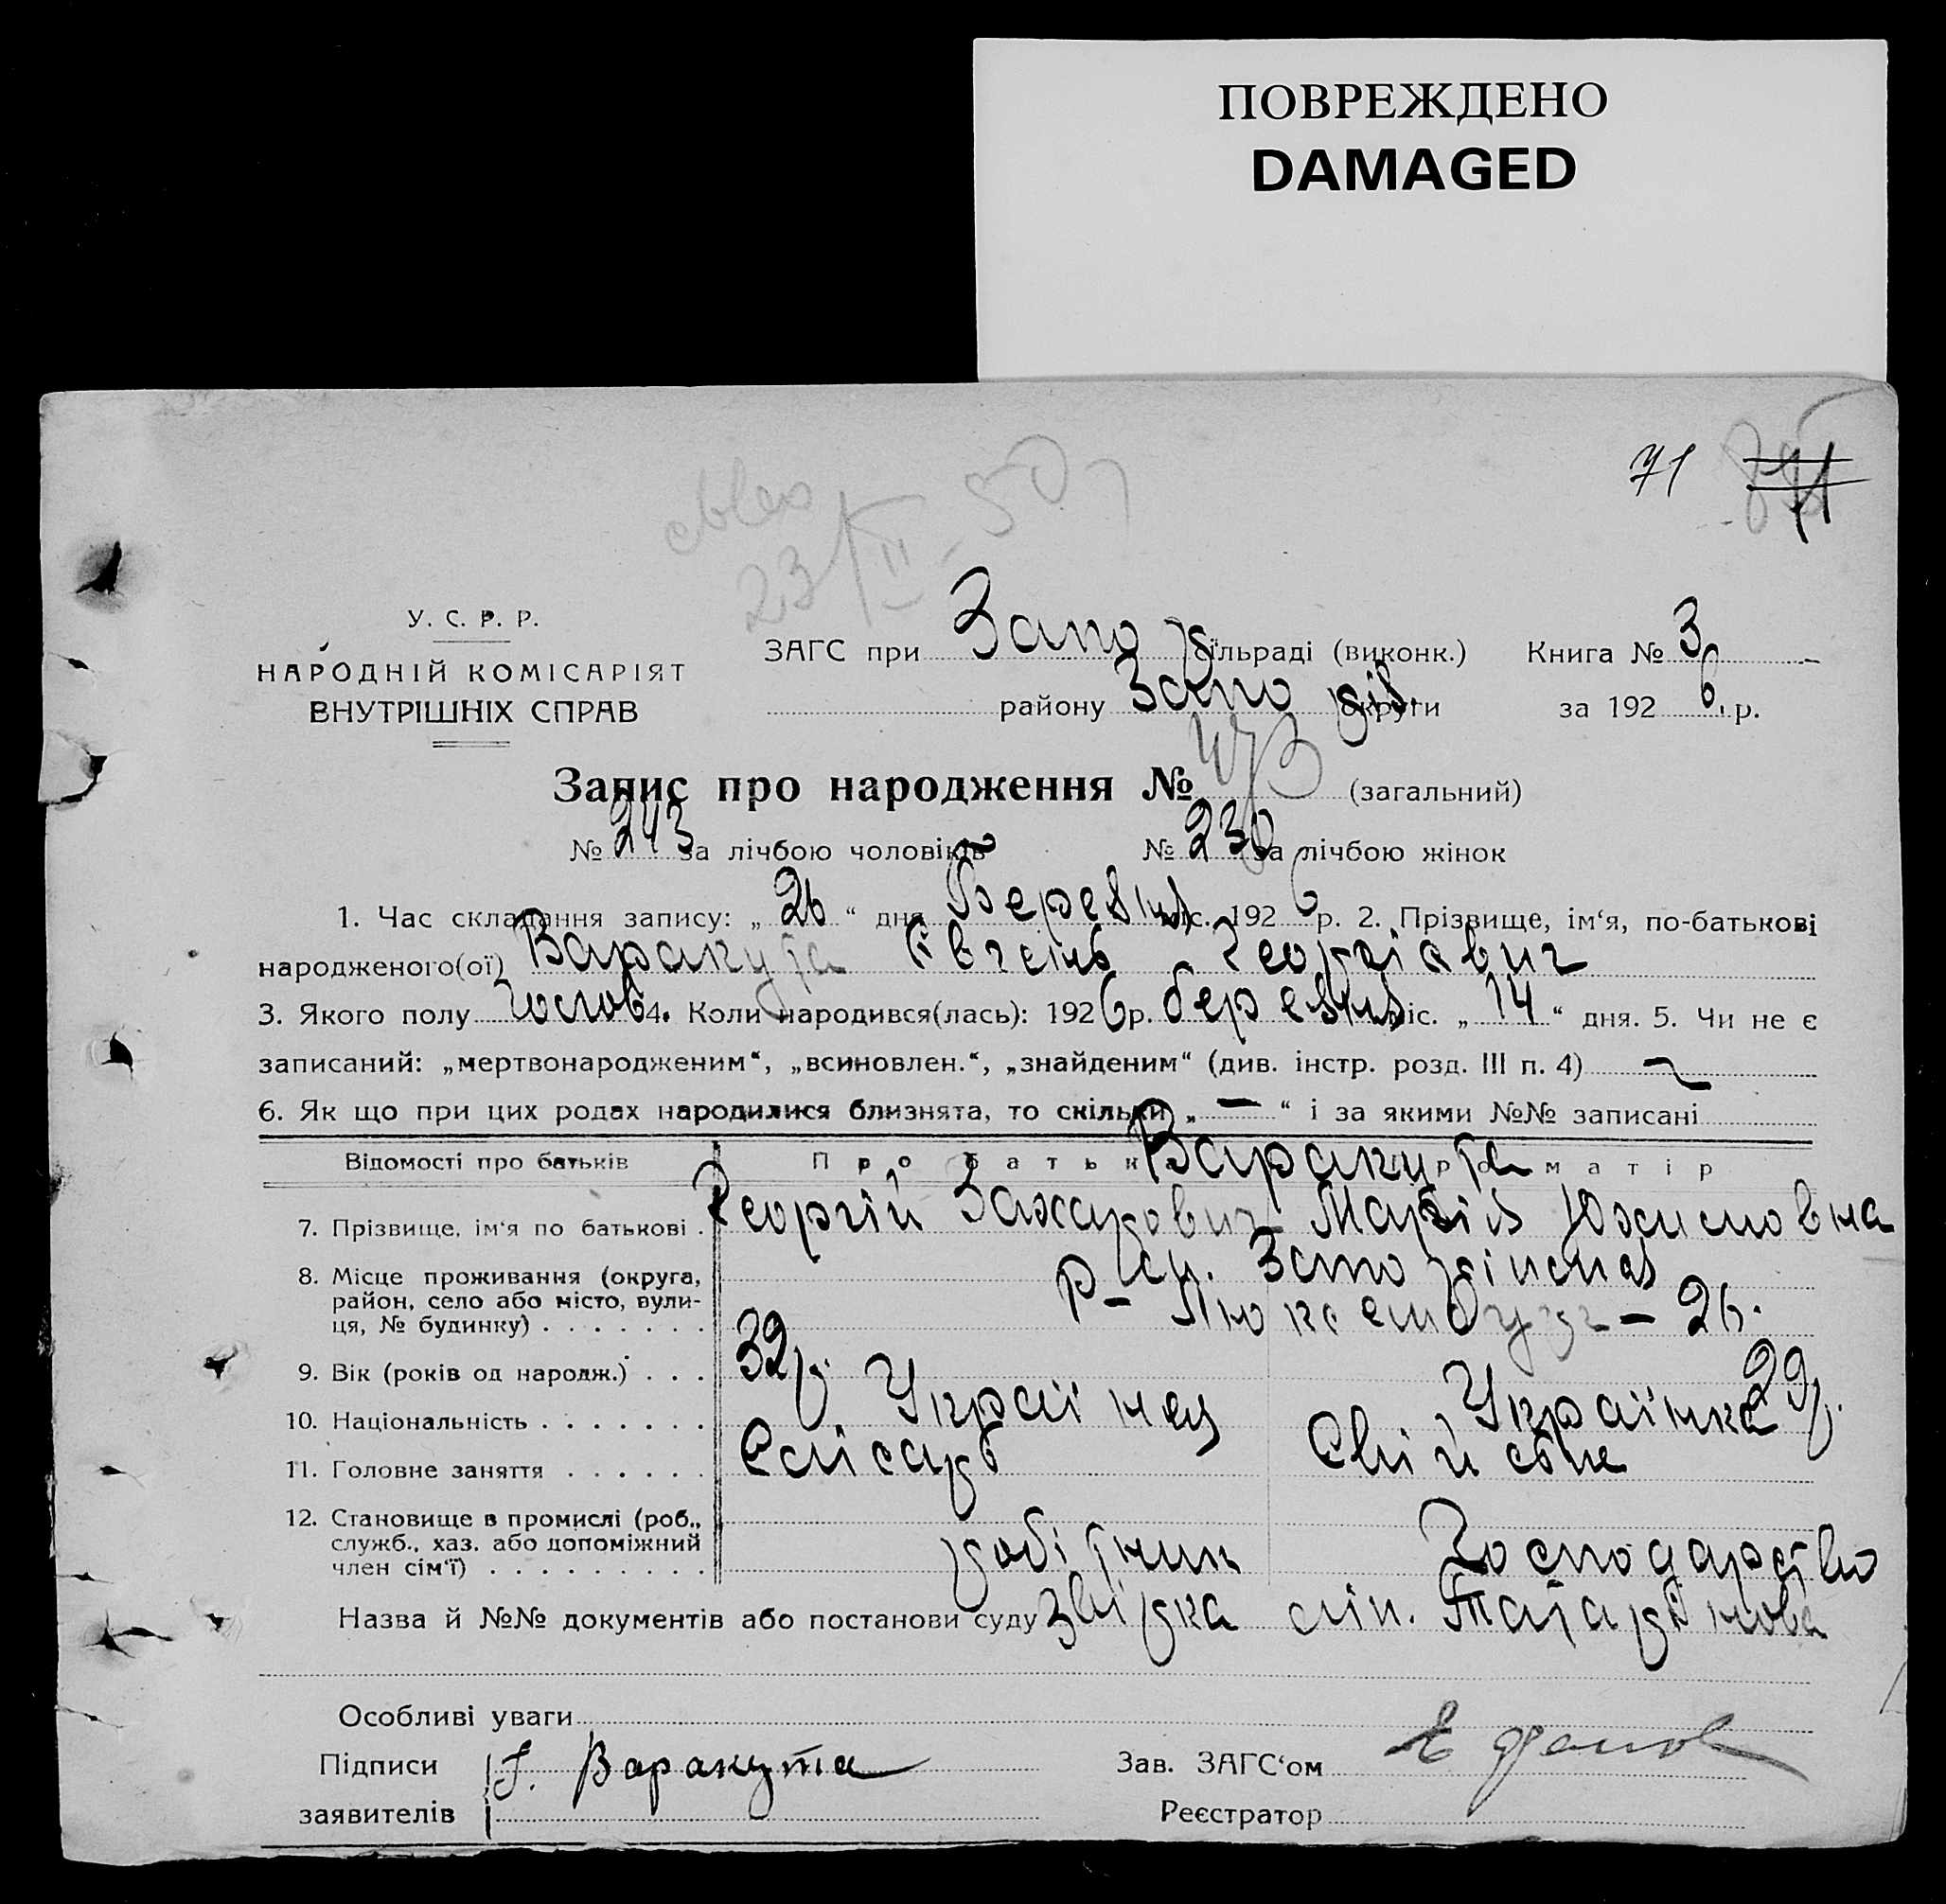 ПОВРЕЖДЕНО
DAMAGED
71 71
23/II-50
У. С. Р. Р.
НАРОДНІЙ КОМІСАРІЯТ
ВНУТРІШНІХ СПРАВ
ЗАГС при Запо сільраді (виконк.) Книга № 3
району Запорiз. округи за 1926 р.
Запис про народження № 473 (загальний)
№ 243 за лічбою чоловіків № 230 за лічбою жінок
1. Час складання запису: „26“ дня Березня міс. 1926 р. 2. Прізвище, ім‘я, по-батькові
народженого(ої) Варакута Євгень Георгієвич
3. Якого полу Чолов. 4. Коли народився(лась): 1926 р. березня міс. „14“ дня. 5. Чи не є
записаний: „мертвонародженим“, „всиновлен.“, „знайденим“ (див. інстр. розд. III п. 4) ~
6. Як що при цих родах народилися близнята, то скільки „—“ і за якими №№ записані
Відомості про батьків Про батька Про матір
Варакута
7. Прізвище, ім‘я по батькові. Георгій Захарович Марія Юхимовна
8. Місце проживання (округа, район, село або місто, вулиця, № будинку)
Р. Люксембург — 26.
9. Вік (років од народж.) 32 р. 29 р.
10. Національність Українец Українка
11. Головне заняття Слісарь Свійське
12. Становище в промислі (роб., служб., хаз. або допоміжний член сім‘ї) робітник Господарство
Назва й №№ документів або постанови суду
Особливі уваги
Підписи заявителів Г. Варакута
Зав. ЗАГС‘ом
Реєстратор